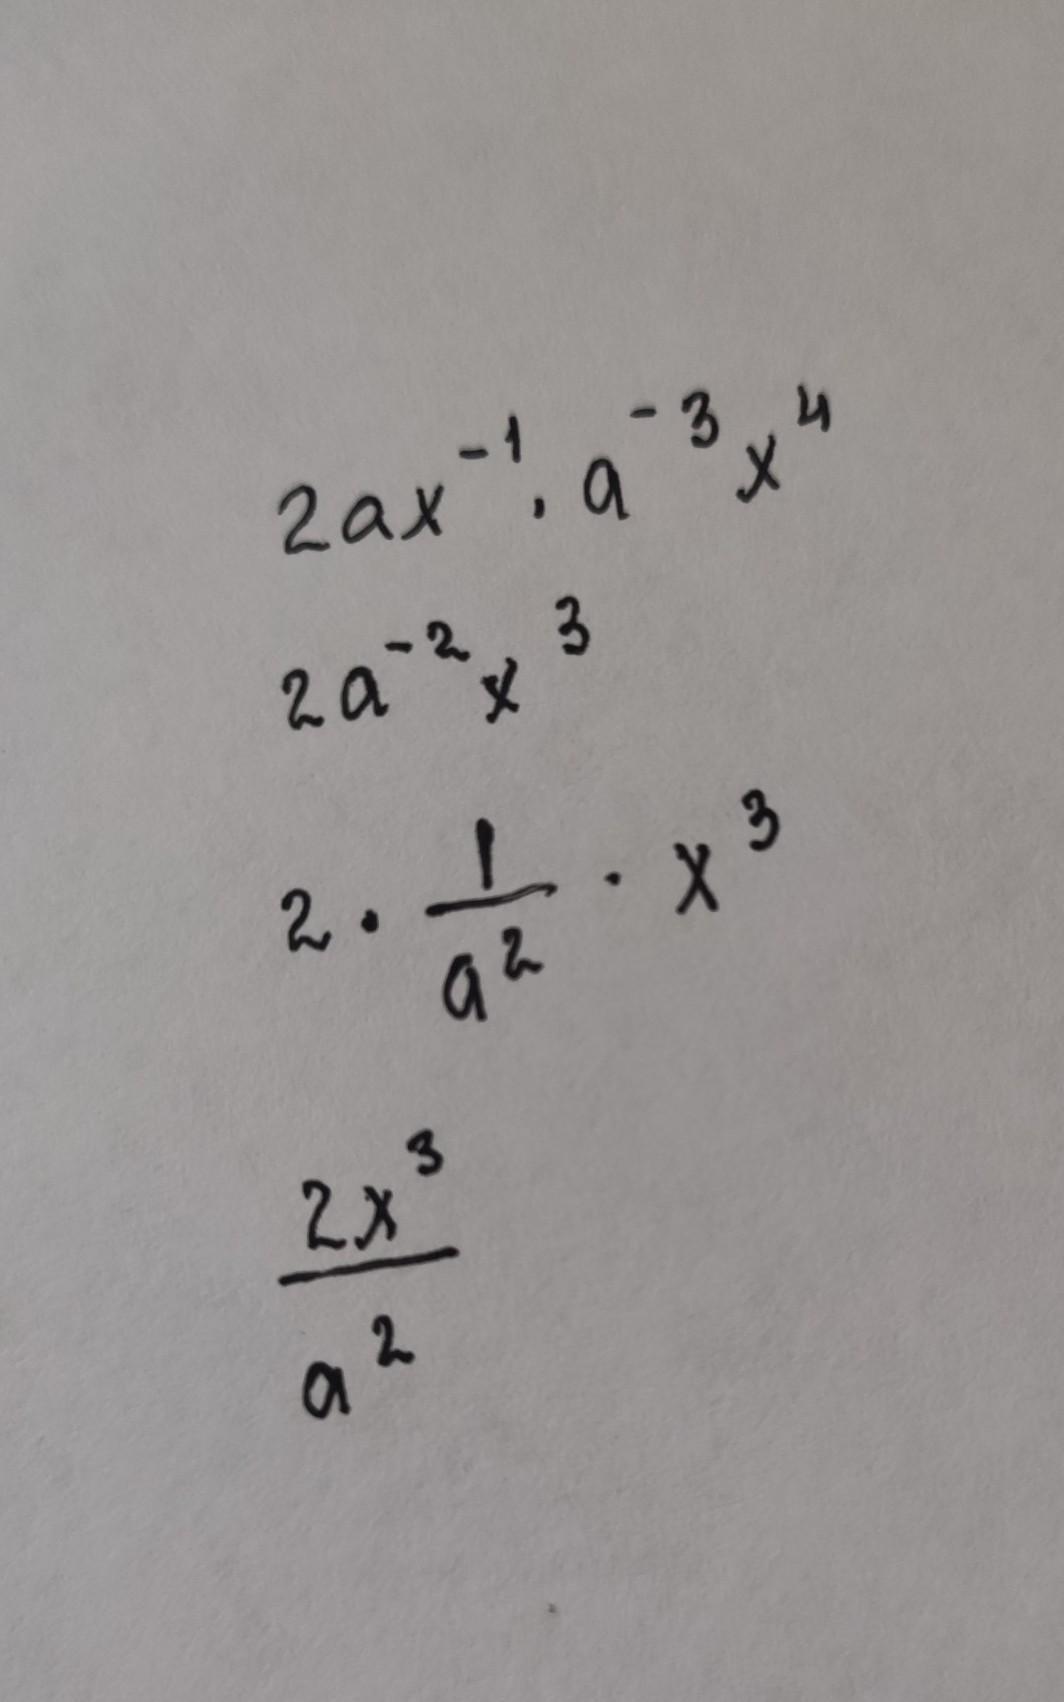 2ax⁻¹ · a⁻³x⁴
2a⁻²x³
2 · 1/a² · x³
2x³/a²